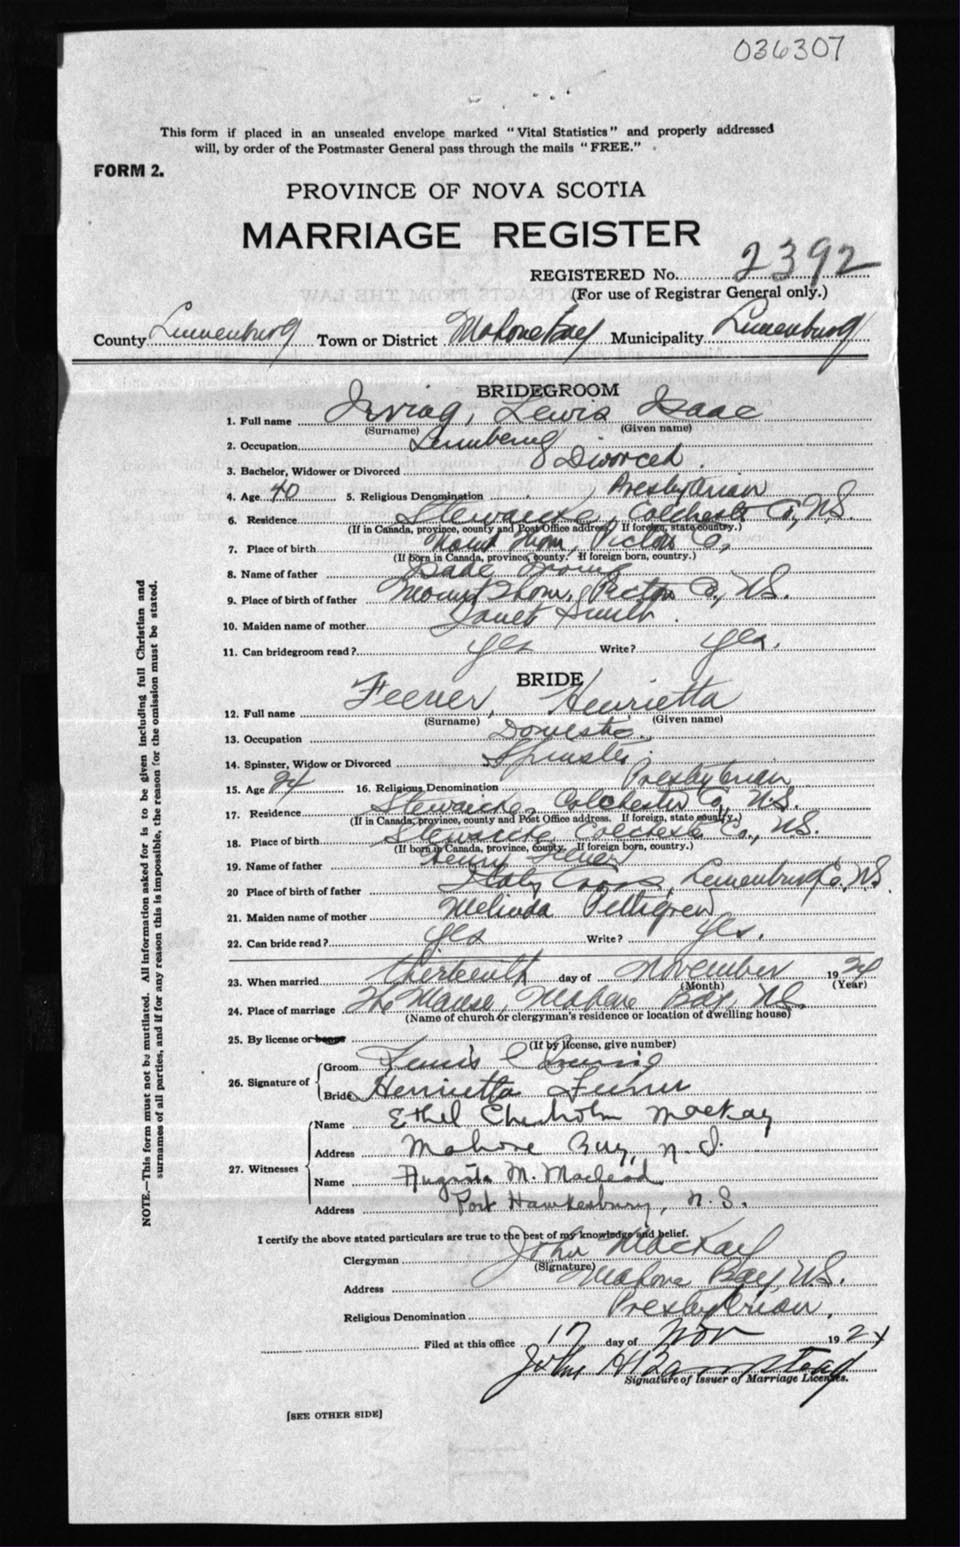 036307
This form if placed in an unsealed envelope marked "Vital Statistics" and properly addressed
will, by order of the Postmaster General pass through the mails "FREE."
FORM 2.
PROVINCE OF NOVA SCOTIA
MARRIAGE REGISTER
REGISTERED No. 2392
(For use of Registrar General only.)
County Lunenburg Town or District Mahone Bay Municipality Lunenburg
BRIDEGROOM
1. Full name Irving, Lewis Isaac
(Surname) (Given name)
2. Occupation Lumbering
3. Bachelor, Widower or Divorced Divorced.
4. Age 40 5. Religious Denomination Presbyterian
6. Residence Stewiacke, Colchester Co., N.S.
(If in Canada, province, county and Post Office address. If foreign, state country.)
7. Place of birth Mount Thom, Pictou Co,
(If born in Canada, province, county. If foreign born, country.)
8. Name of father Isaac Irving
9. Place of birth of father Mount Thom, Pictou Co., N.S.
10. Maiden name of mother Janet Smith.
11. Can bridegroom read? yes Write? yes.
BRIDE
12. Full name Feener, Henrietta
(Surname) (Given name)
13. Occupation Domestic.
14. Spinster, Widow or Divorced Spinster.
15. Age 24 16. Religious Denomination Presbyterian
17. Residence Stewiacke, Colchester Co., N.S.
(If in Canada, province, county and Post Office address. If foreign, state country.)
18. Place of birth Stewiacke Colchester Co., N.S.
(If born in Canada, province, county. If foreign born, country.)
19. Name of father Henry Feener
20 Place of birth of father Italy Cross, Lunenburg Co. N.S.
21. Maiden name of mother Melinda Pettigrew
22. Can bride read? yes Write? yes.
23. When married thirteenth day of November 1924
(Month) (Year)
24. Place of marriage The Manse, Mahone Bay, N.S.
(Name of church or clergyman's residence or location of dwelling house)
25. By license or banns
(If by license, give number)
26. Signature of Groom Lewis I Irving
Bride Henrietta Feener
27. Witnesses Name Ethel Chisholm MacKay
Address Mahone Bay, N.S.
Name Augusta M. Macleod
Address Port Hawkesbury, N.S.
I certify the above stated particulars are true to the best of my knowledge and belief.
Clergyman John MacKay
(Signature)
Address Mahone Bay N.S.
Religious Denomination Presbyterian.
Filed at this office 17 day of Nov 1924
John H Barnstead
Signature of Issuer of Marriage Licenses.
[SEE OTHER SIDE]
NOTE.—This form must not be mutilated. All information asked for is to be given including full Christian and
surnames of all parties, and if for any reason this is impossible, the reason for the omission must be stated.